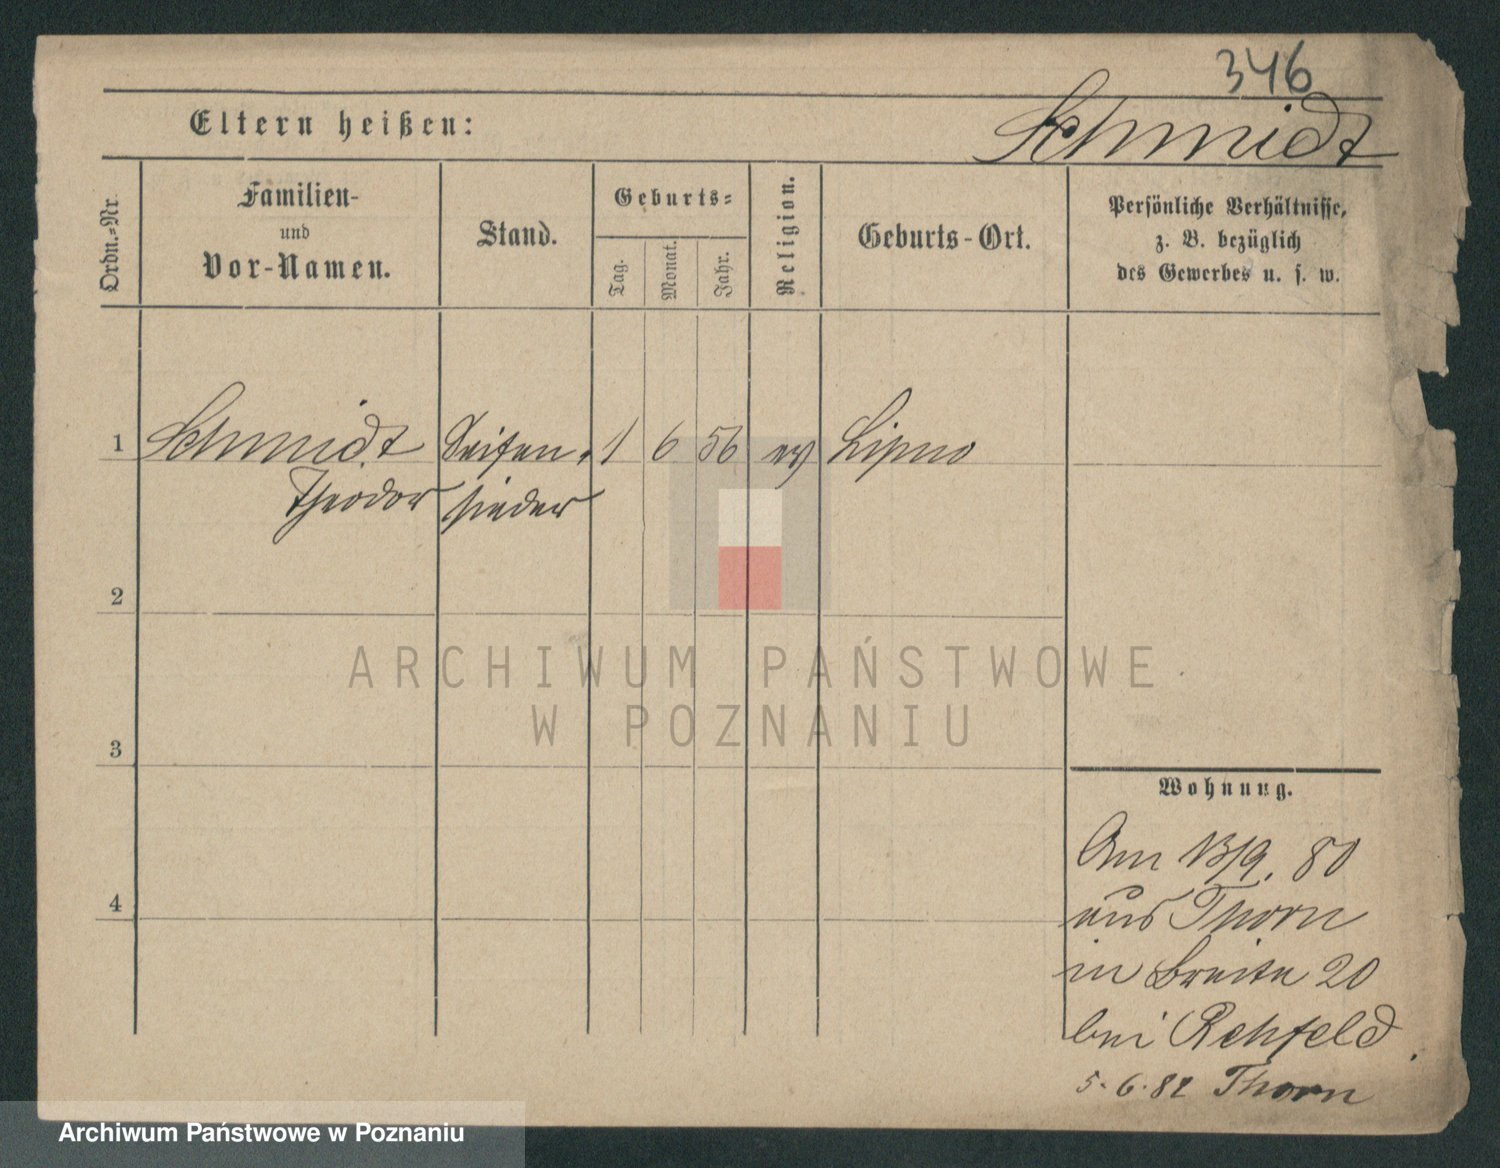 346
Eltern heißen:
Schmidt
Ordn.-Nr.
Familien-
und
Vor-Namen.
Stand.
Geburts-
Tag.
Monat.
Jahr.
Religion.
Geburts-Ort.
Persönliche Verhältnisse,
z. B. bezüglich
des Gewerbes u. s. w.
1 Schmidt Seifen- 1 6 56 ev Lipno
Theodor sieder
2
ARCHIWUM PAŃSTWOWE
W POZNANIU
3
Wohnung.
Am 13/9. 80
aus Thorn
4
in Breite 20
bei Rehfeld
5.6.82 Thorn
Archiwum Państwowe w Poznaniu